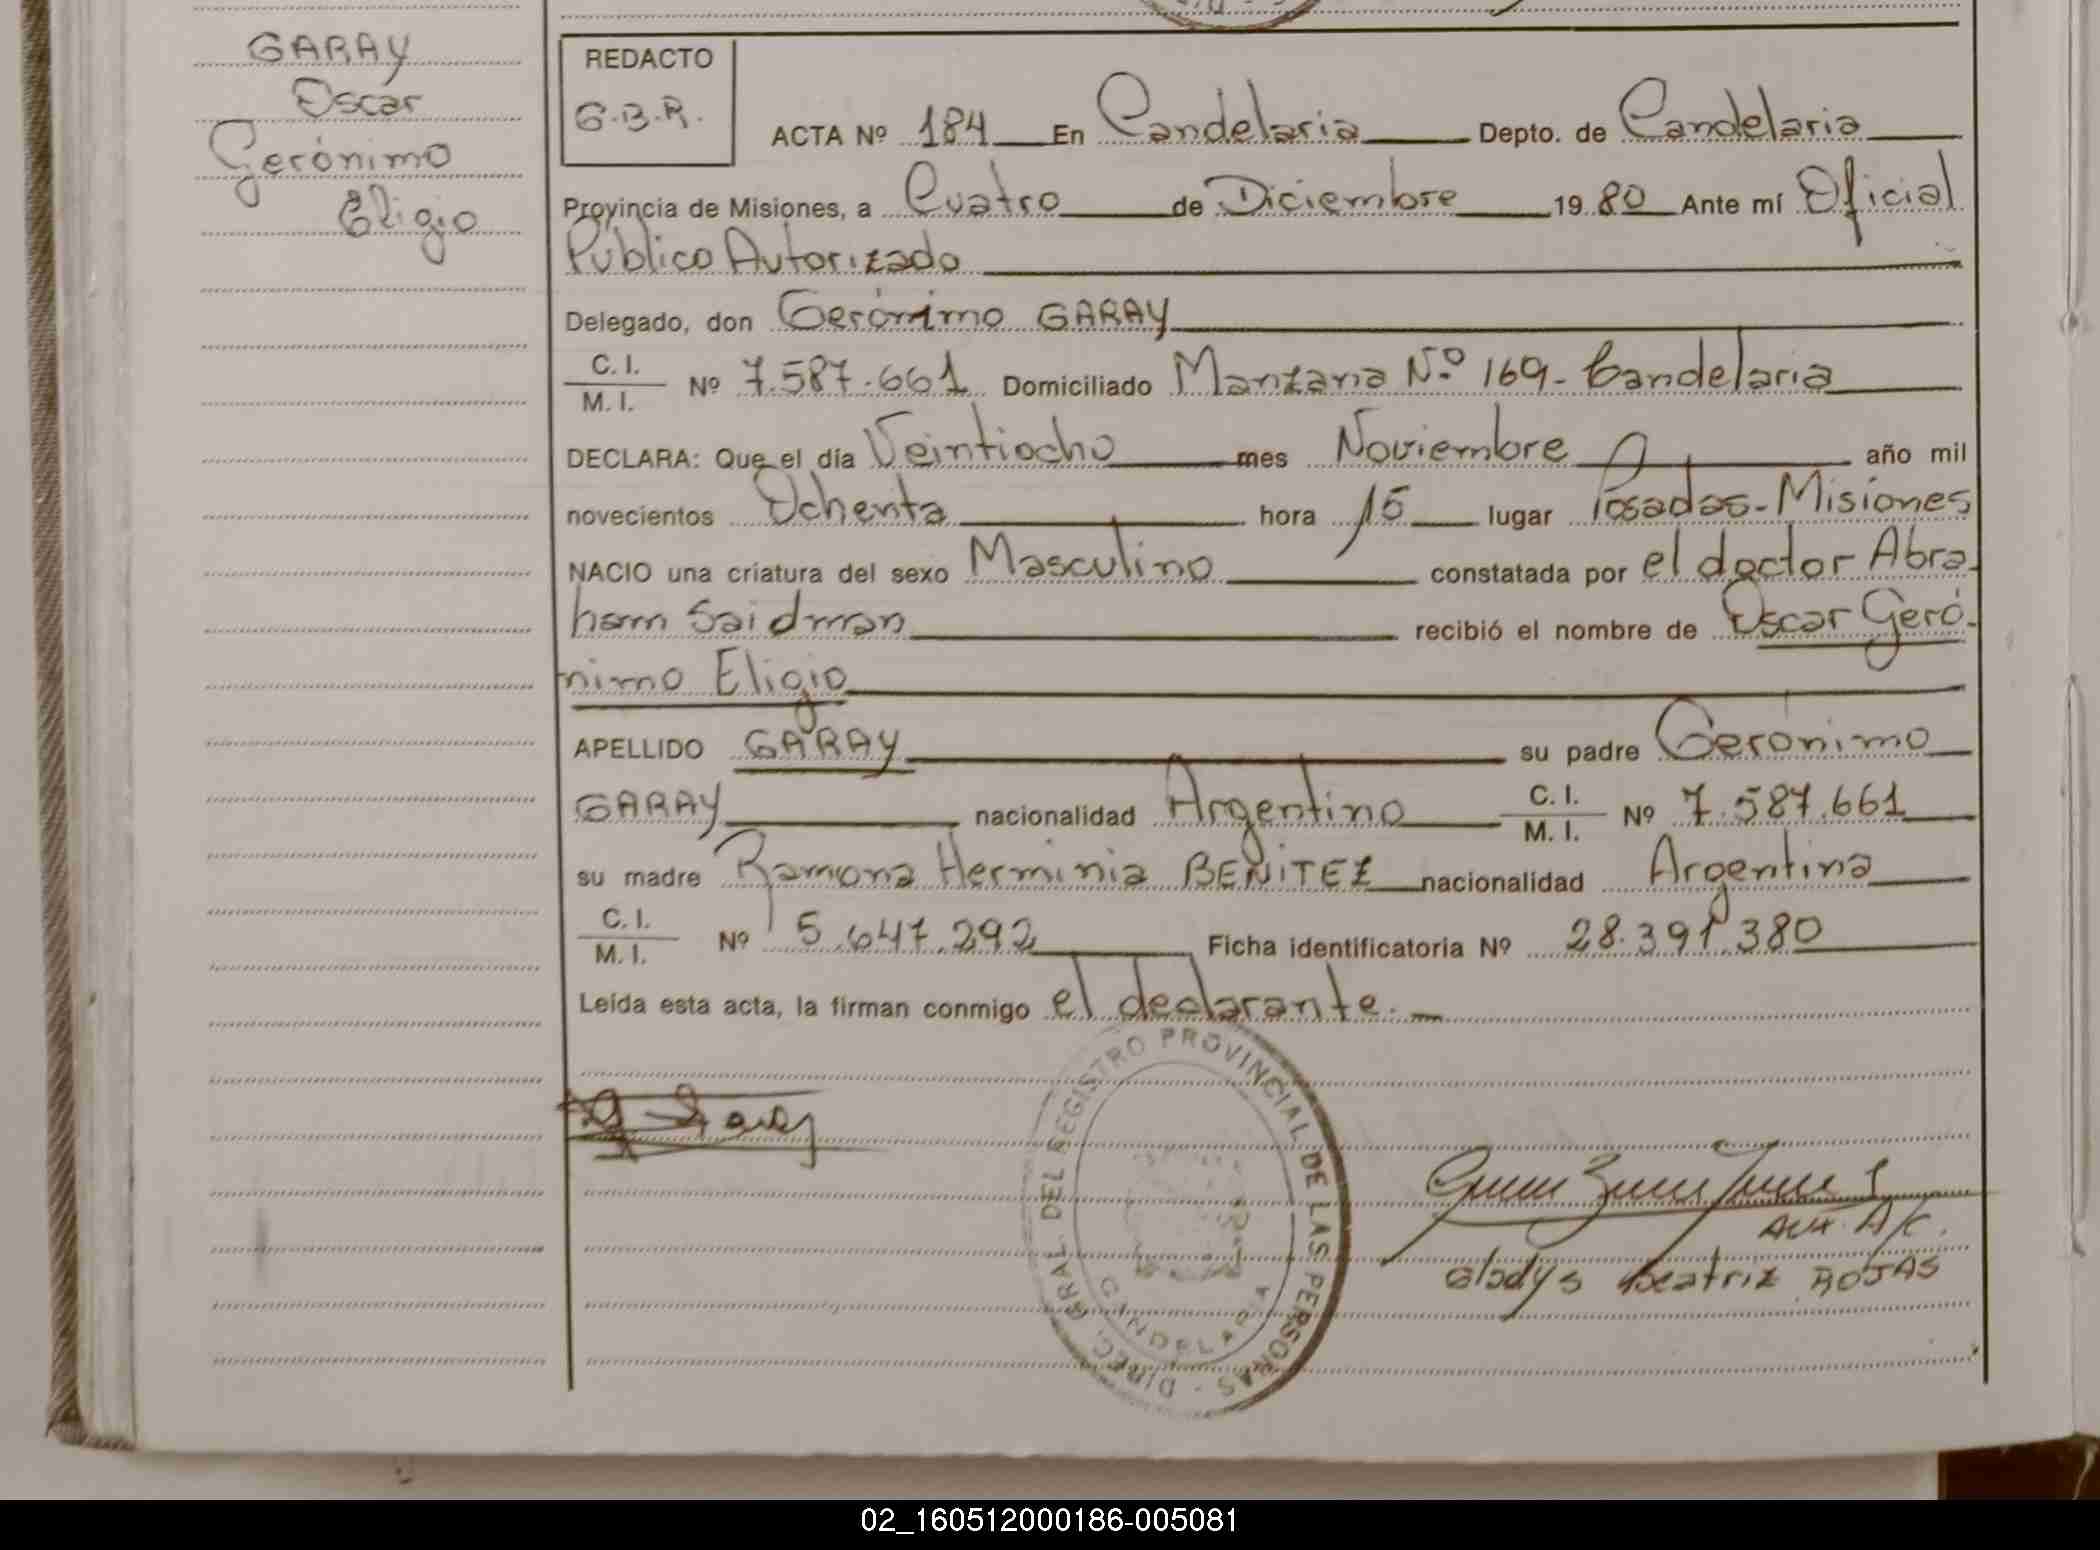 GARAY
Oscar
Gerónimo
Eligio
REDACTO
G.B.R.
ACTA Nº 184 En Candelaria Depto. de Candelaria
Provincia de Misiones, a Cuatro de Diciembre 1980 Ante mí Oficial
Público Autorizado
Delegado, don Gerónimo GARAY
C. I.
M. I. Nº 7.587.661 Domiciliado Manzana Nº 169- Candelaria
DECLARA: Que el día Veintiocho mes Noviembre año mil
novecientos Ochenta hora 15 lugar Posadas-Misiones
NACIO una criatura del sexo Masculino constatada por el doctor Abra-
ham Saidman recibió el nombre de Oscar Geró-
nimo Eligio
APELLIDO GARAY su padre Gerónimo
GARAY nacionalidad Argentino C. I. M. I. Nº 7.587.661
su madre Ramona Herminia BENITEZ nacionalidad Argentina
C. I.
M. I. Nº 5.647.292 Ficha identificatoria Nº 28.391.380
Leída esta acta, la firman conmigo el declarante.-
DIREC. GRAL. DEL REGISTRO PROVINCIAL DE LAS PERSONAS -
CANDELARIA
Aux. A/C.
Gladys Beatriz ROJAS
02_160512000186-005081